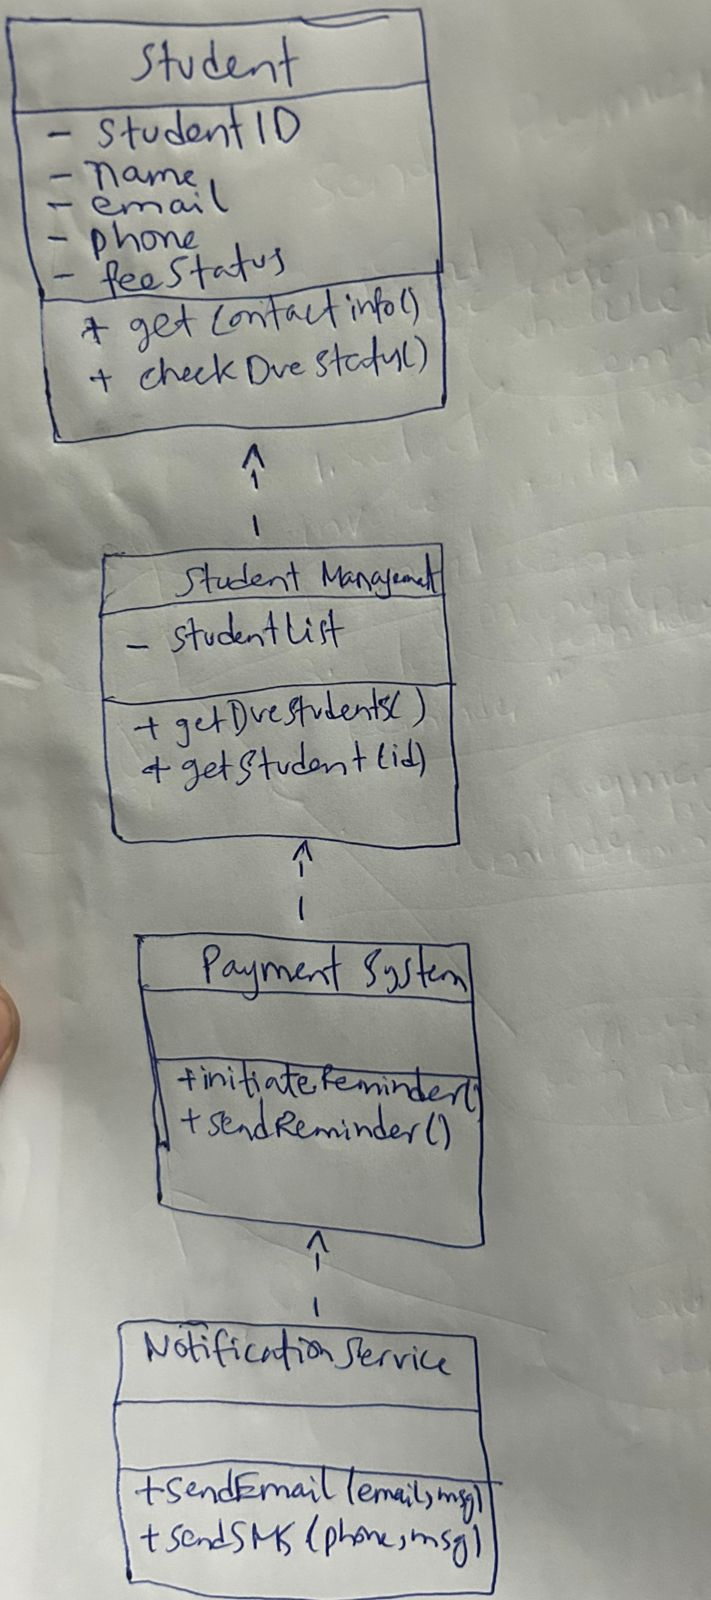 Student
- StudentID
- name
- email
- phone
- feeStatus
+ getContactinfo()
+ checkDueStatus()
Student Management
- StudentList
+ getDueStudents()
+ getStudent(id)
Payment System
+initiateReminder()
+sendReminder()
NotificationService
+sendEmail(email,msg)
+sendSMS(phone,msg)